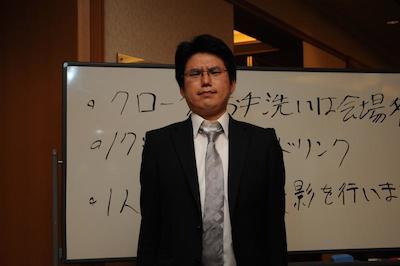 • クロー 手洗いは会場
• 1ク ドリンク
• 1人 影を行いま